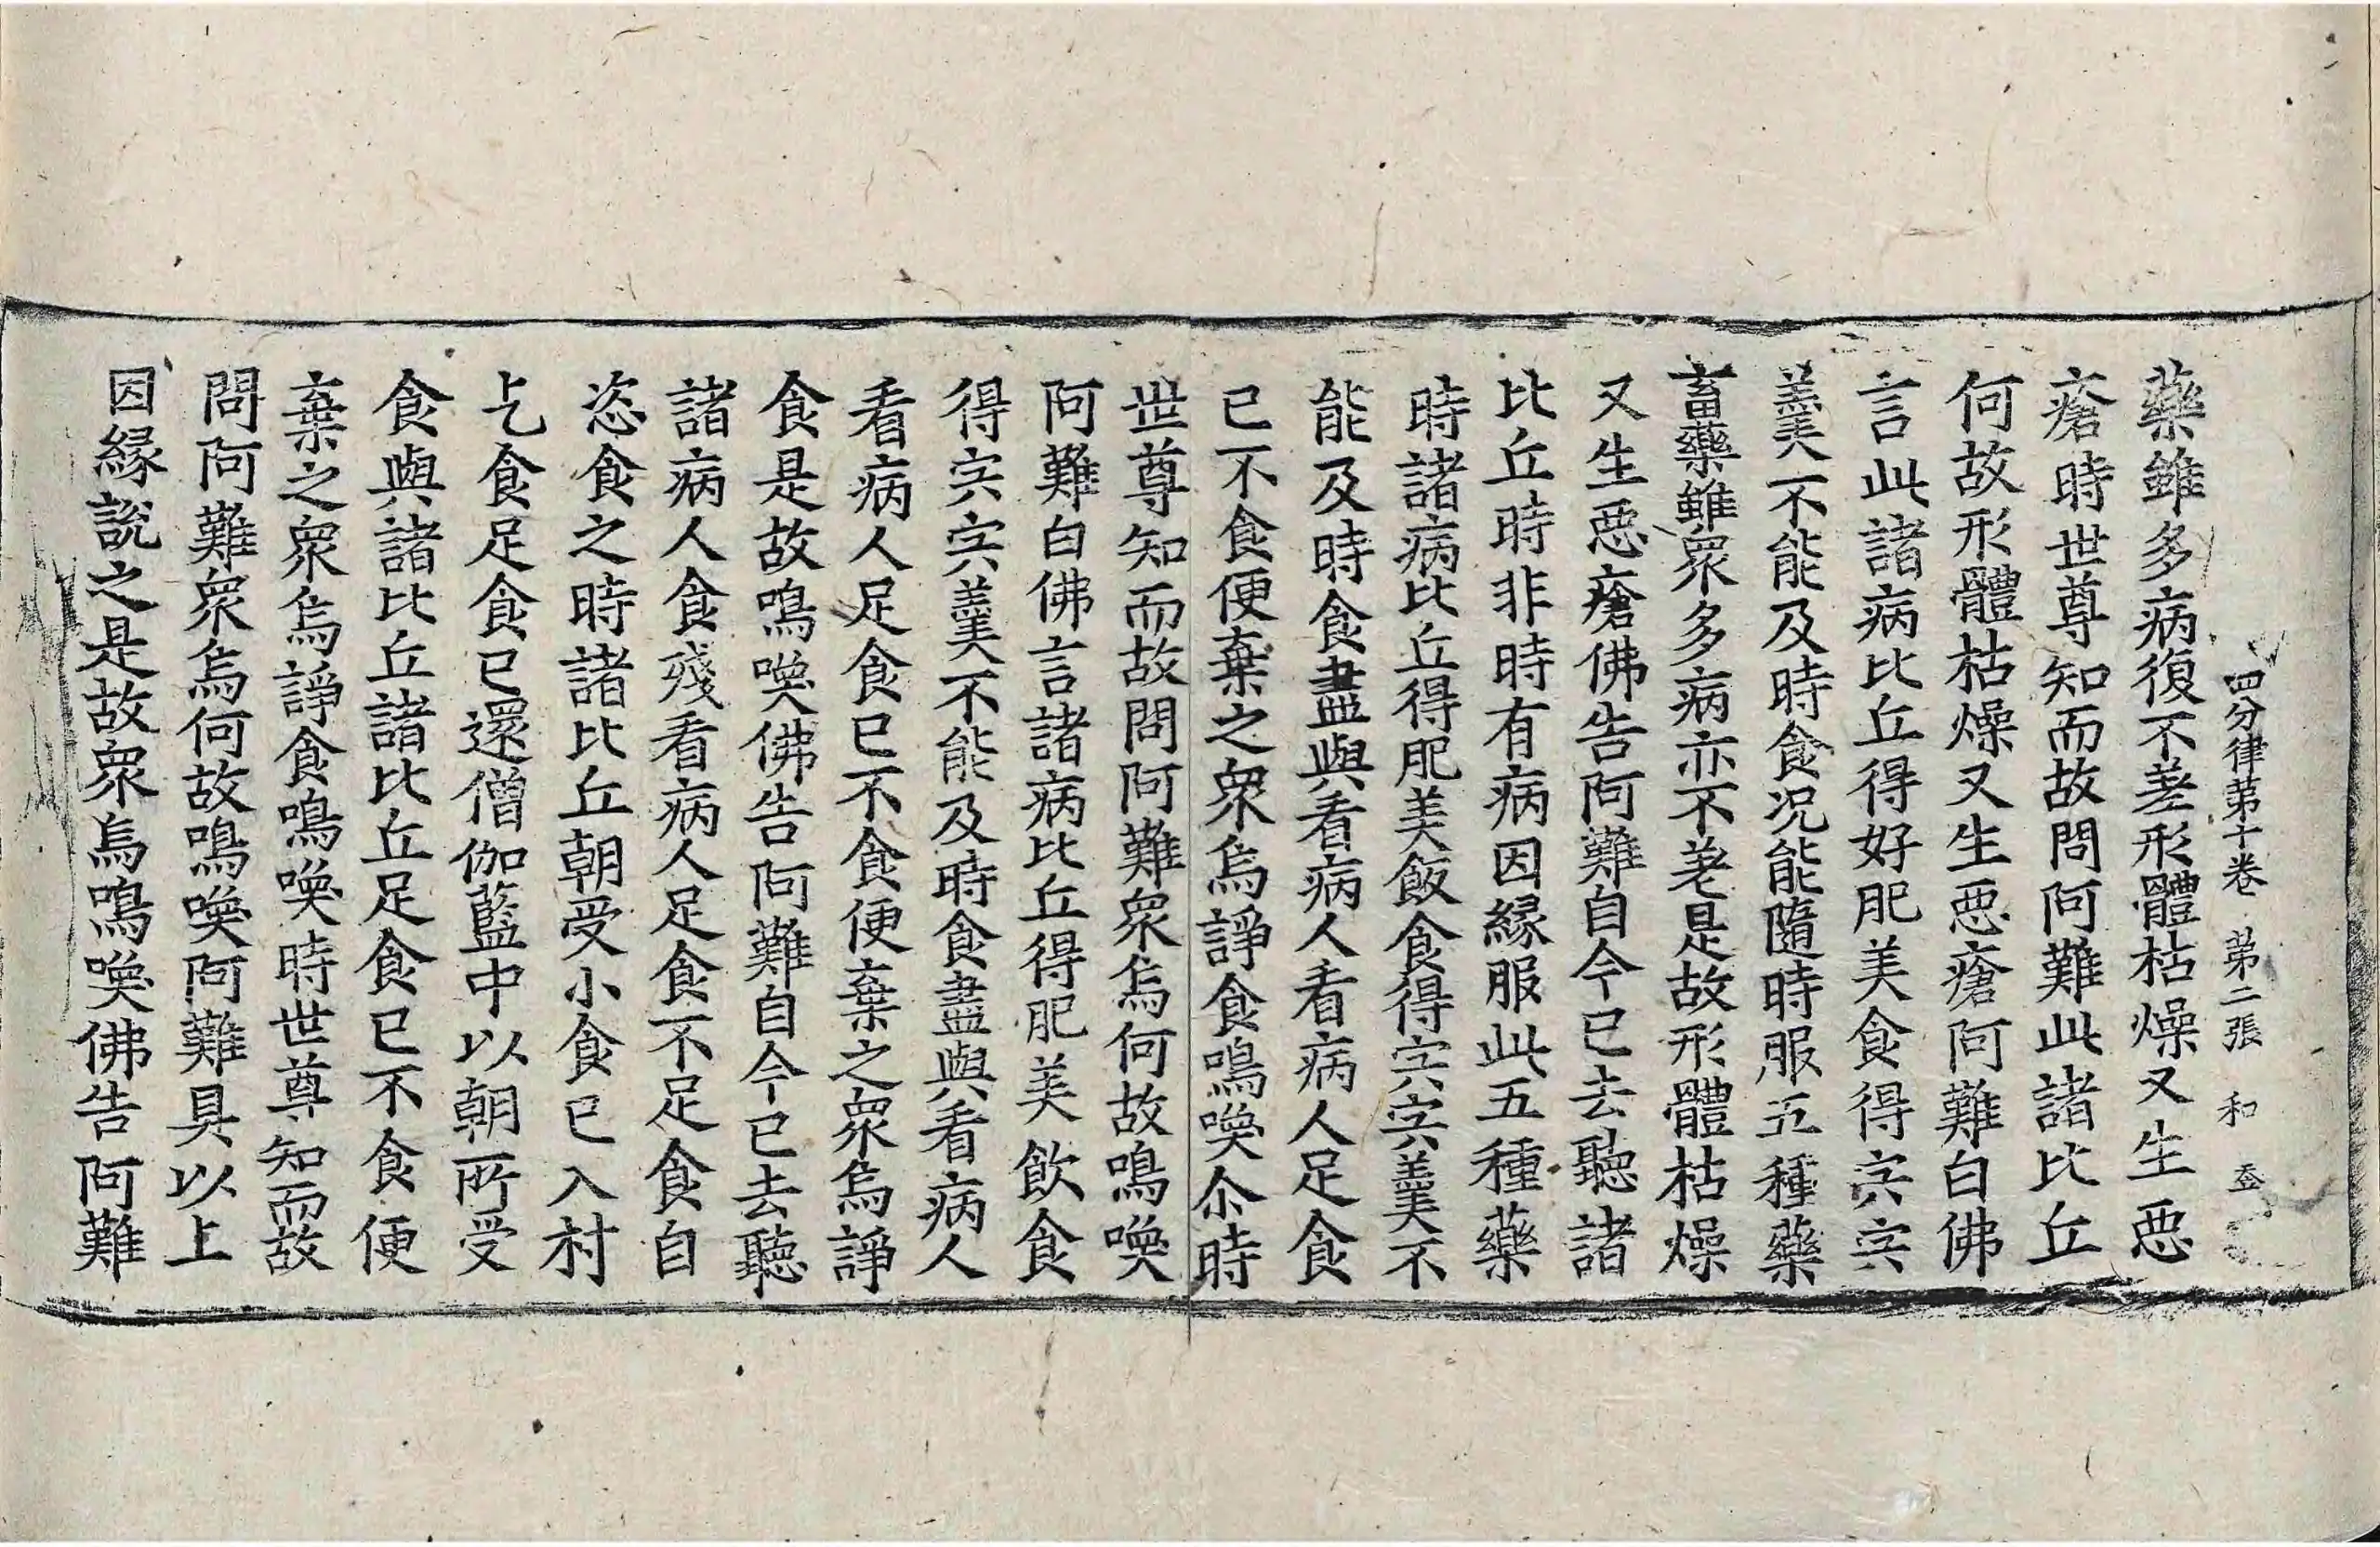 四分律第十卷　第二張　和
藥雖多病復不差形體枯燥又生惡
瘡時世尊知而故問阿難此諸比丘
何故形體枯燥又生惡瘡阿難白佛
言此諸病比丘得好肥美食得宍宍
羹不能及時食況能隨時服五種藥
畜藥雖眾多病亦不差是故形體枯燥
又生惡瘡佛告阿難自今已去聽諸
比丘時非時有病因緣服此五種藥
時諸病比丘得肥美飯食得宍宍羹不
能及時食盡與看病人看病人足食
已不食便棄之眾烏諍食鳴喚尒時
世尊知而故問阿難眾烏何故鳴喚
阿難白佛言諸病比丘得肥美飲食
得宍宍羹不能及時食盡與看病人
看病人足食已不食便棄之眾烏諍
食是故鳴喚佛告阿難自今已去聽
諸病人食殘看病人足食不足食自
恣食之時諸比丘朝受小食已入村
乞食足食已還僧伽藍中以朝所受
食與諸比丘諸比丘足食已不食便
棄之眾烏諍食鳴喚時世尊知而故
問阿難眾烏何故鳴喚阿難具以上
因緣說之是故眾烏鳴喚佛告阿難